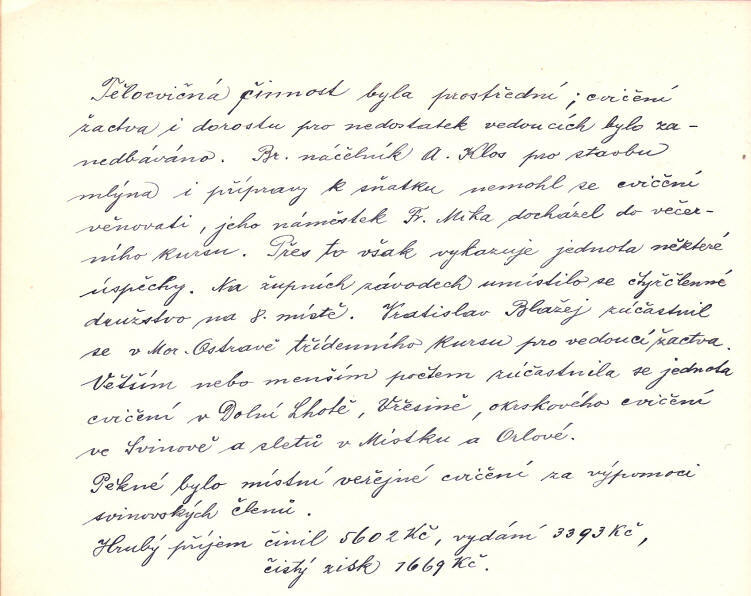 Tělocvičná činnost byla prostřední; cvičení
žactva i dorostu pro nedostatek vedoucích bylo za-
nedbáváno. Br. náčelník A. Klos pro stavbu
mlýna i přípravy k sňatku nemohl se cvičení
věnovati, jeho náměstek Fr. Mika docházel do večer-
ního kursu. Přes to však vykazuje jednota některé
úspěchy. Na župních závodech umístilo se čtyřčlenné
družstvo na 8. místě. Vratislav Blažej zúčastnil
se v Mor. Ostravě třídenního kursu pro vedoucí žactva.
Větším nebo menším počtem zúčastnila se jednota
cvičení v Dolní Lhotě, Vřesině, okrskového cvičení
ve Svinově a sletů v Místku a Orlové.
Pěkné bylo místní veřejné cvičení za výpomoci
svinovských členů.
Hrubý příjem činil 5602 Kč, vydání 3393 Kč,
čistý zisk 1669 Kč.